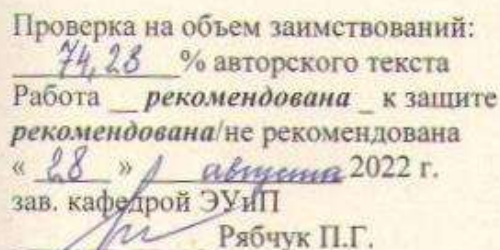 Проверка на объем заимствований:
74,28 % авторского текста
Работа __ рекомендована _ к защите
рекомендована/не рекомендована
« 28 » августа 2022 г.
зав. кафедрой ЭУиП
Рябчук П.Г.